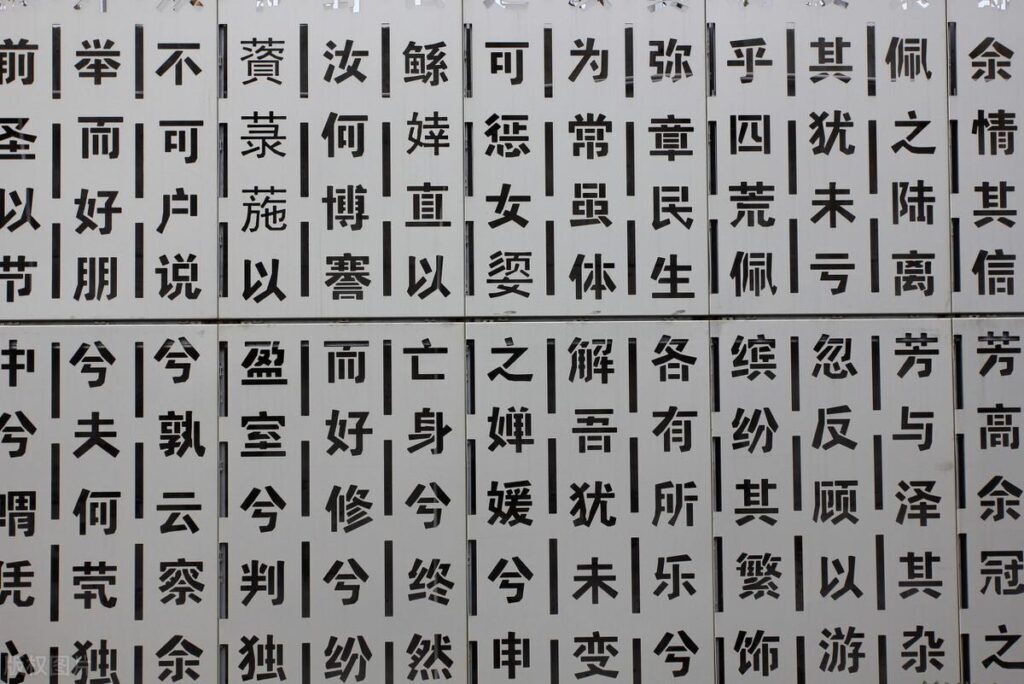 余情其信芳高余冠之
佩之陆离芳与泽其杂
其犹未亏忽反顾以游
乎四荒佩缤纷其繁饰
弥章民生各有所乐兮
为常虽体解吾犹未变
可惩女媭之婵媛兮申
鲧婞直以亡身兮终然
汝何博謇而好修兮纷
薋菉葹以盈室兮判独
不可户说兮孰云察余
举而好朋兮夫何茕独
前圣以节中兮喟凭心